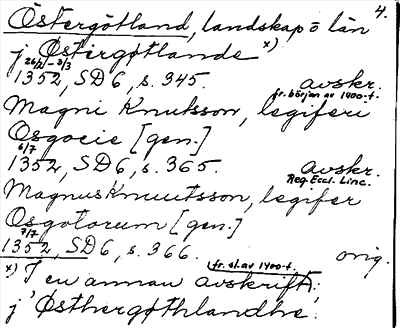 4.
Östergötland, landskap o län
j Østirgøtlande x)
26/2 - 3/3
1352, SD 6, s. 345. avskr.
fr. början av 1400-t.
Magni Knutsson, legiferi
Osgocie [gen.]
6/7
1352, SD 6, s. 365. avskr.
Reg. Eccl. Linc.
Magnus Knuutsson, legifer
Osgotorum [gen.]
7/7
1352, SD 6, s. 366. orig.
x) I en annan avskrift, fr. sl. av 1400-t.:
j Østhergøthlandhe.